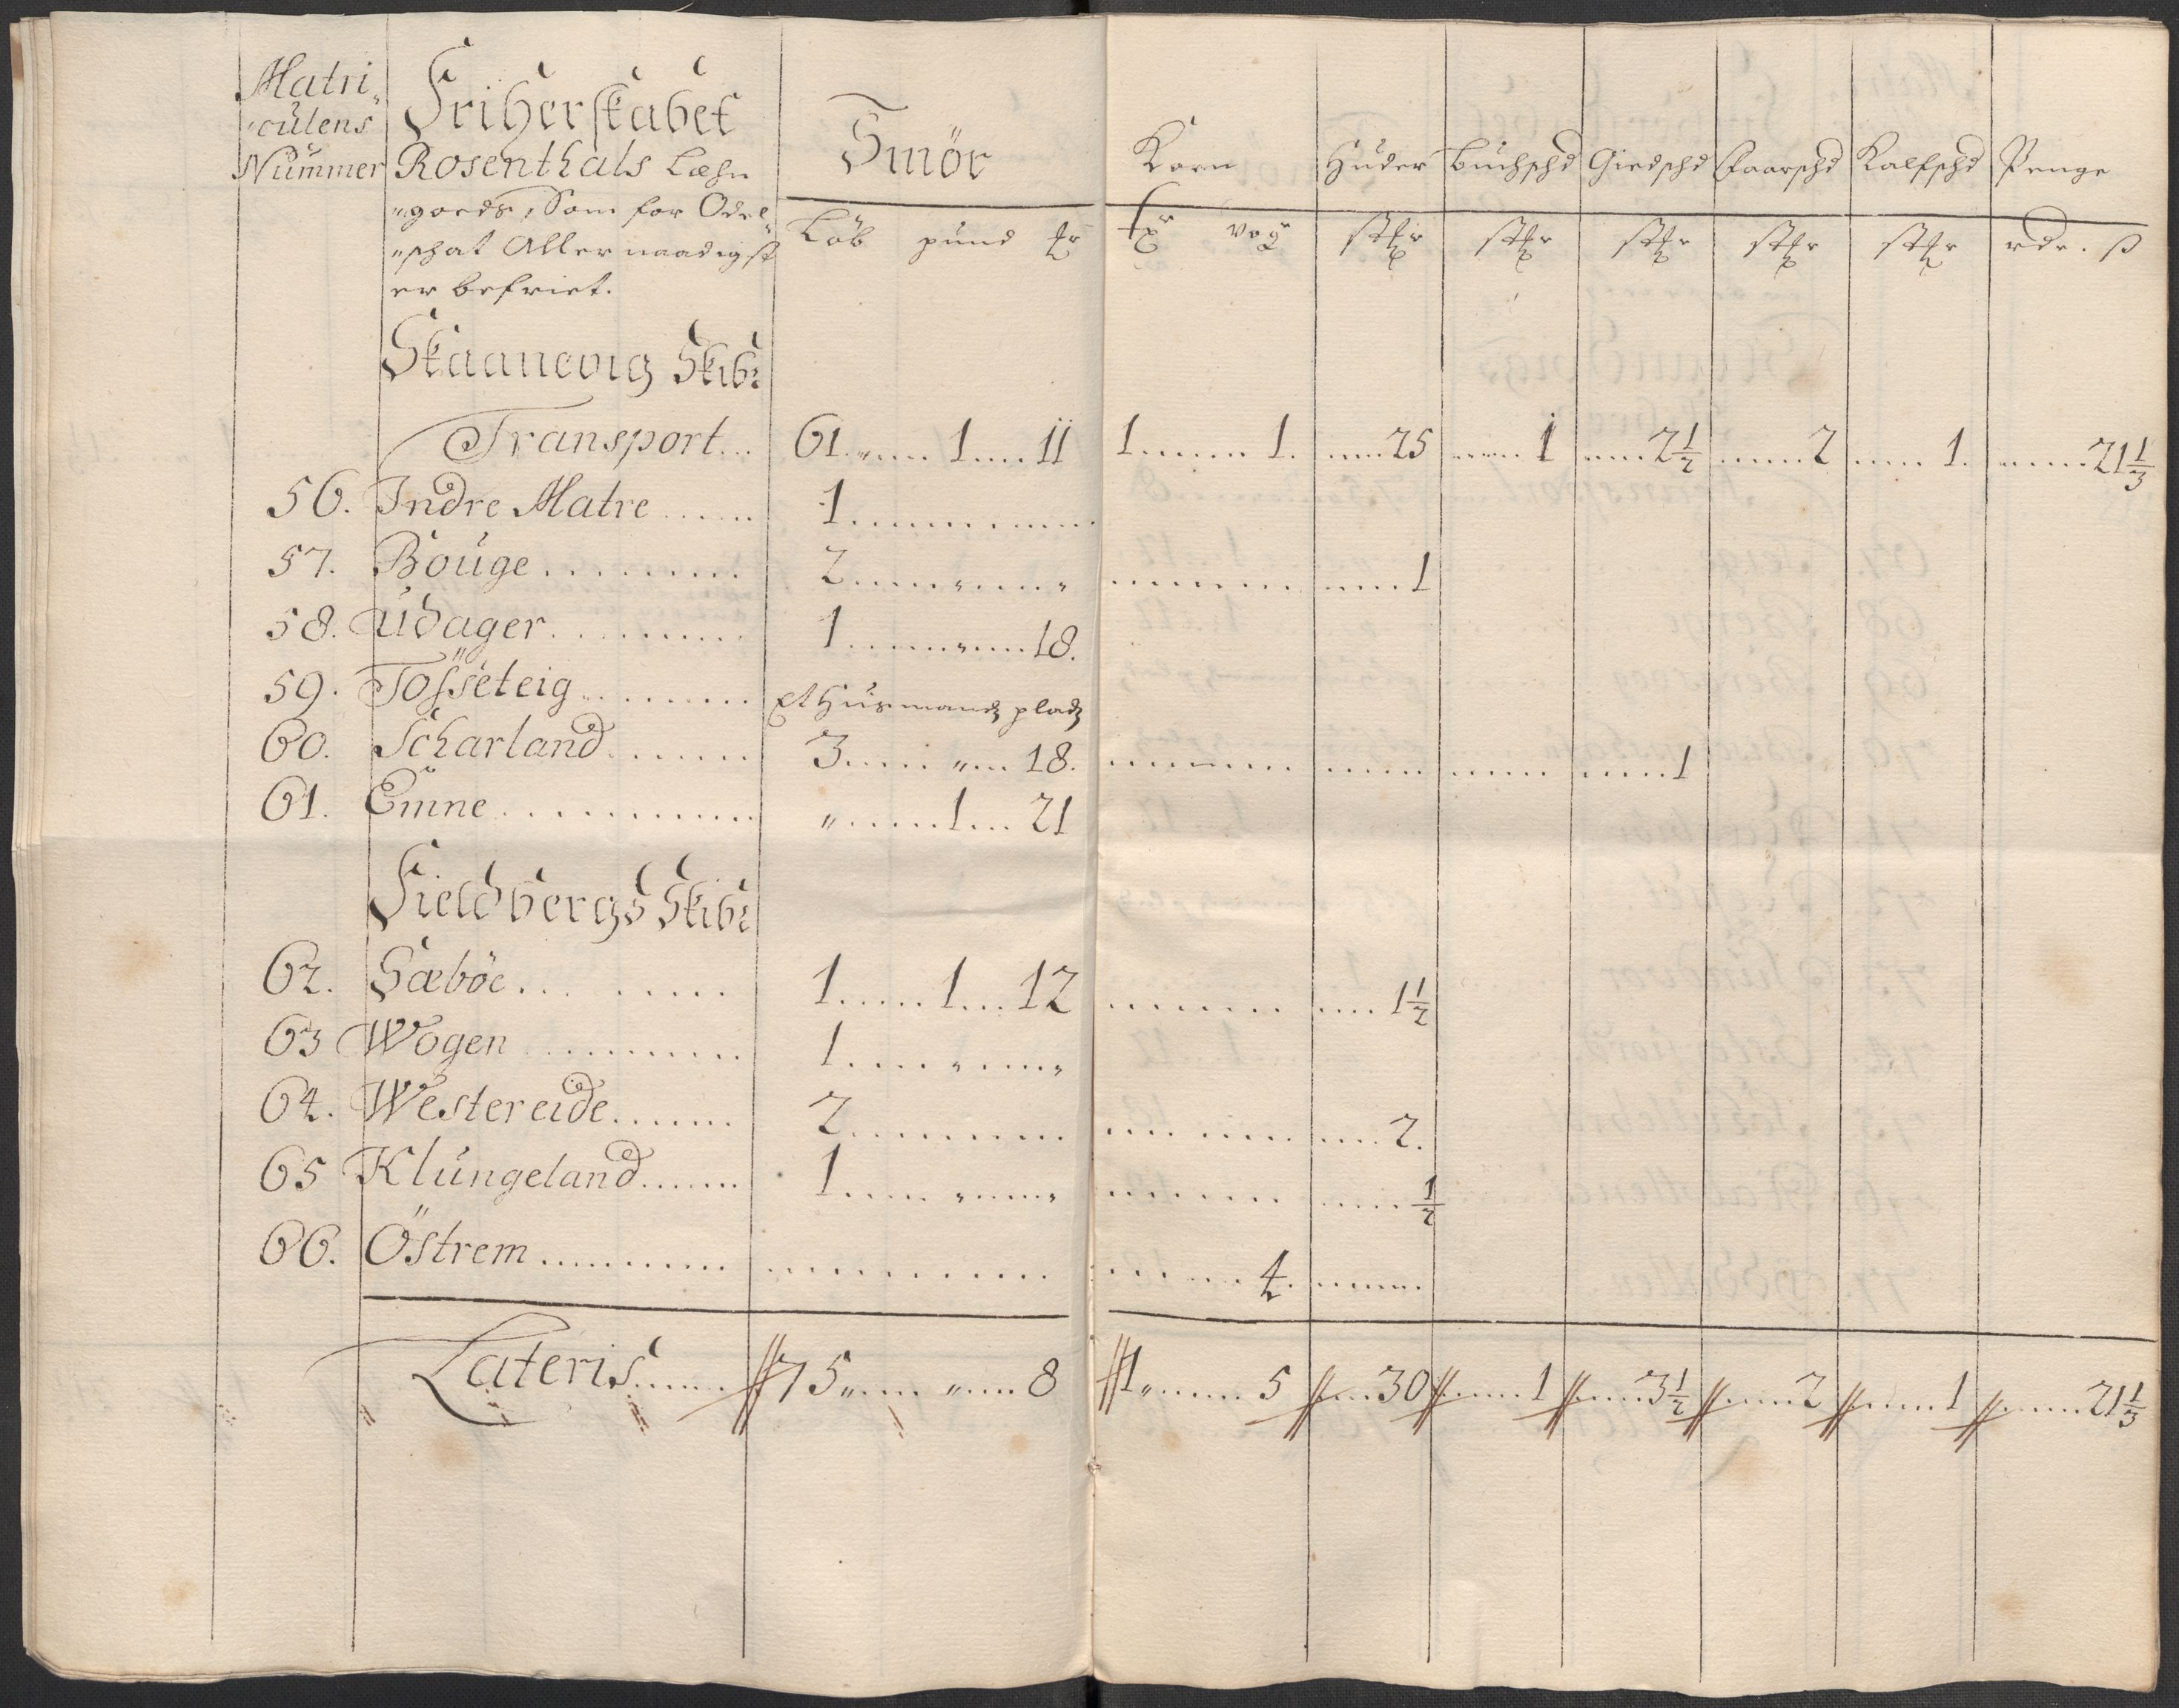 Matri„
„culens
Nummer
Friherskabet
Rosenthals Læhn
„goeds, Som for Odel„
„schat Aller naadigst
er befriet.
Smör
Löb pund
Korn Huder Buchschd Giedschd Faarschd Kalfschd Penge
rdr. ß
Skaanevig Skibr
Transport... 61 „ 1 11 1 1. 25 1 2½ 2 1. 21⅓
56. Indre Matre 1
57. Bouge 2 „ „ 1
58. Udager 1 „ 18.
59. Tösseteig Et Husmands plads
60. Scharland 3 „ 18. 1
61. Emne „ 1 21
Fieldbergs Skibr
62. Sæböe 1 1 12 1½
63 Wogen 1 „ „
64. Westereide 2 2.
65 Klungeland 1 „ „ ½
66. Östrem 4.
Lateris 75 „ „ 8 1 „ 5 30 1 3½ 2 1 21⅓